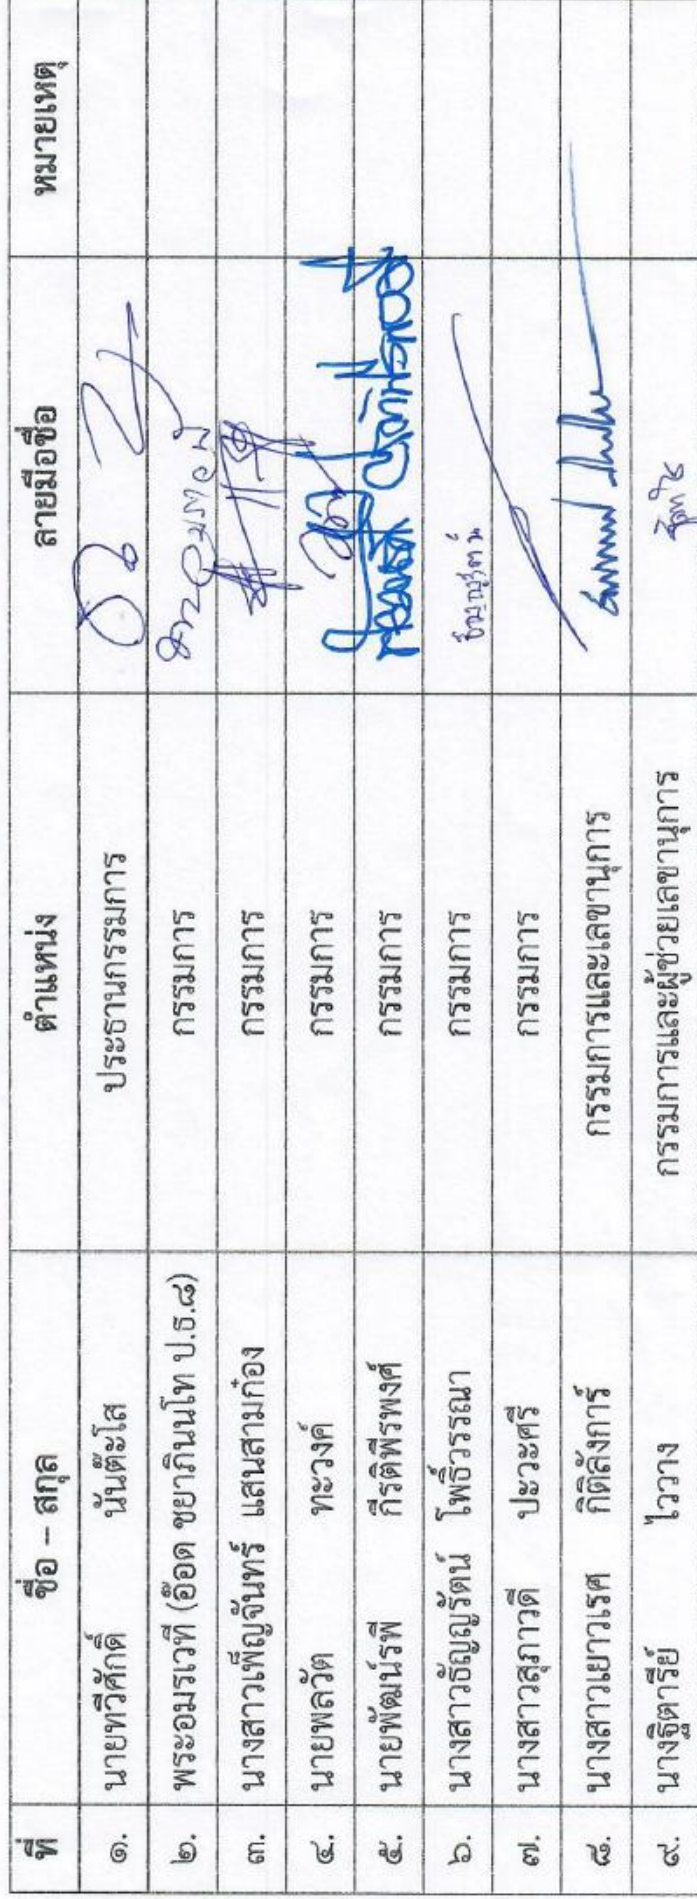 ที่ ชื่อ – สกุล ตำแหน่ง ลายมือชื่อ หมายเหตุ
๑. นายทวีศักดิ์ นันต๊ะโส ประธานกรรมการ
๒. พระอมรเวที (อ๊อด ชยาภินนโท ป.ธ.๘) กรรมการ พระอมรเวที
๓. นางสาวเพ็ญจันทร์ แสนสามก๋อง กรรมการ
๔. นายพลวัต ทะวงค์ กรรมการ
๕. นายพัฒน์รพี กีรติพีรพงศ์ กรรมการ
๖. นางสาวธัญญรัตน์ โพธิ์วรรณา กรรมการ ธัญญรัตน์
๗. นางสาวสุภาวดี ปะวะศรี กรรมการ
๘. นางสาวเยาวเรศ กิติลังการ์ กรรมการและเลขานุการ
๙. นางฐิตารีย์ ไววาง กรรมการและผู้ช่วยเลขานุการ